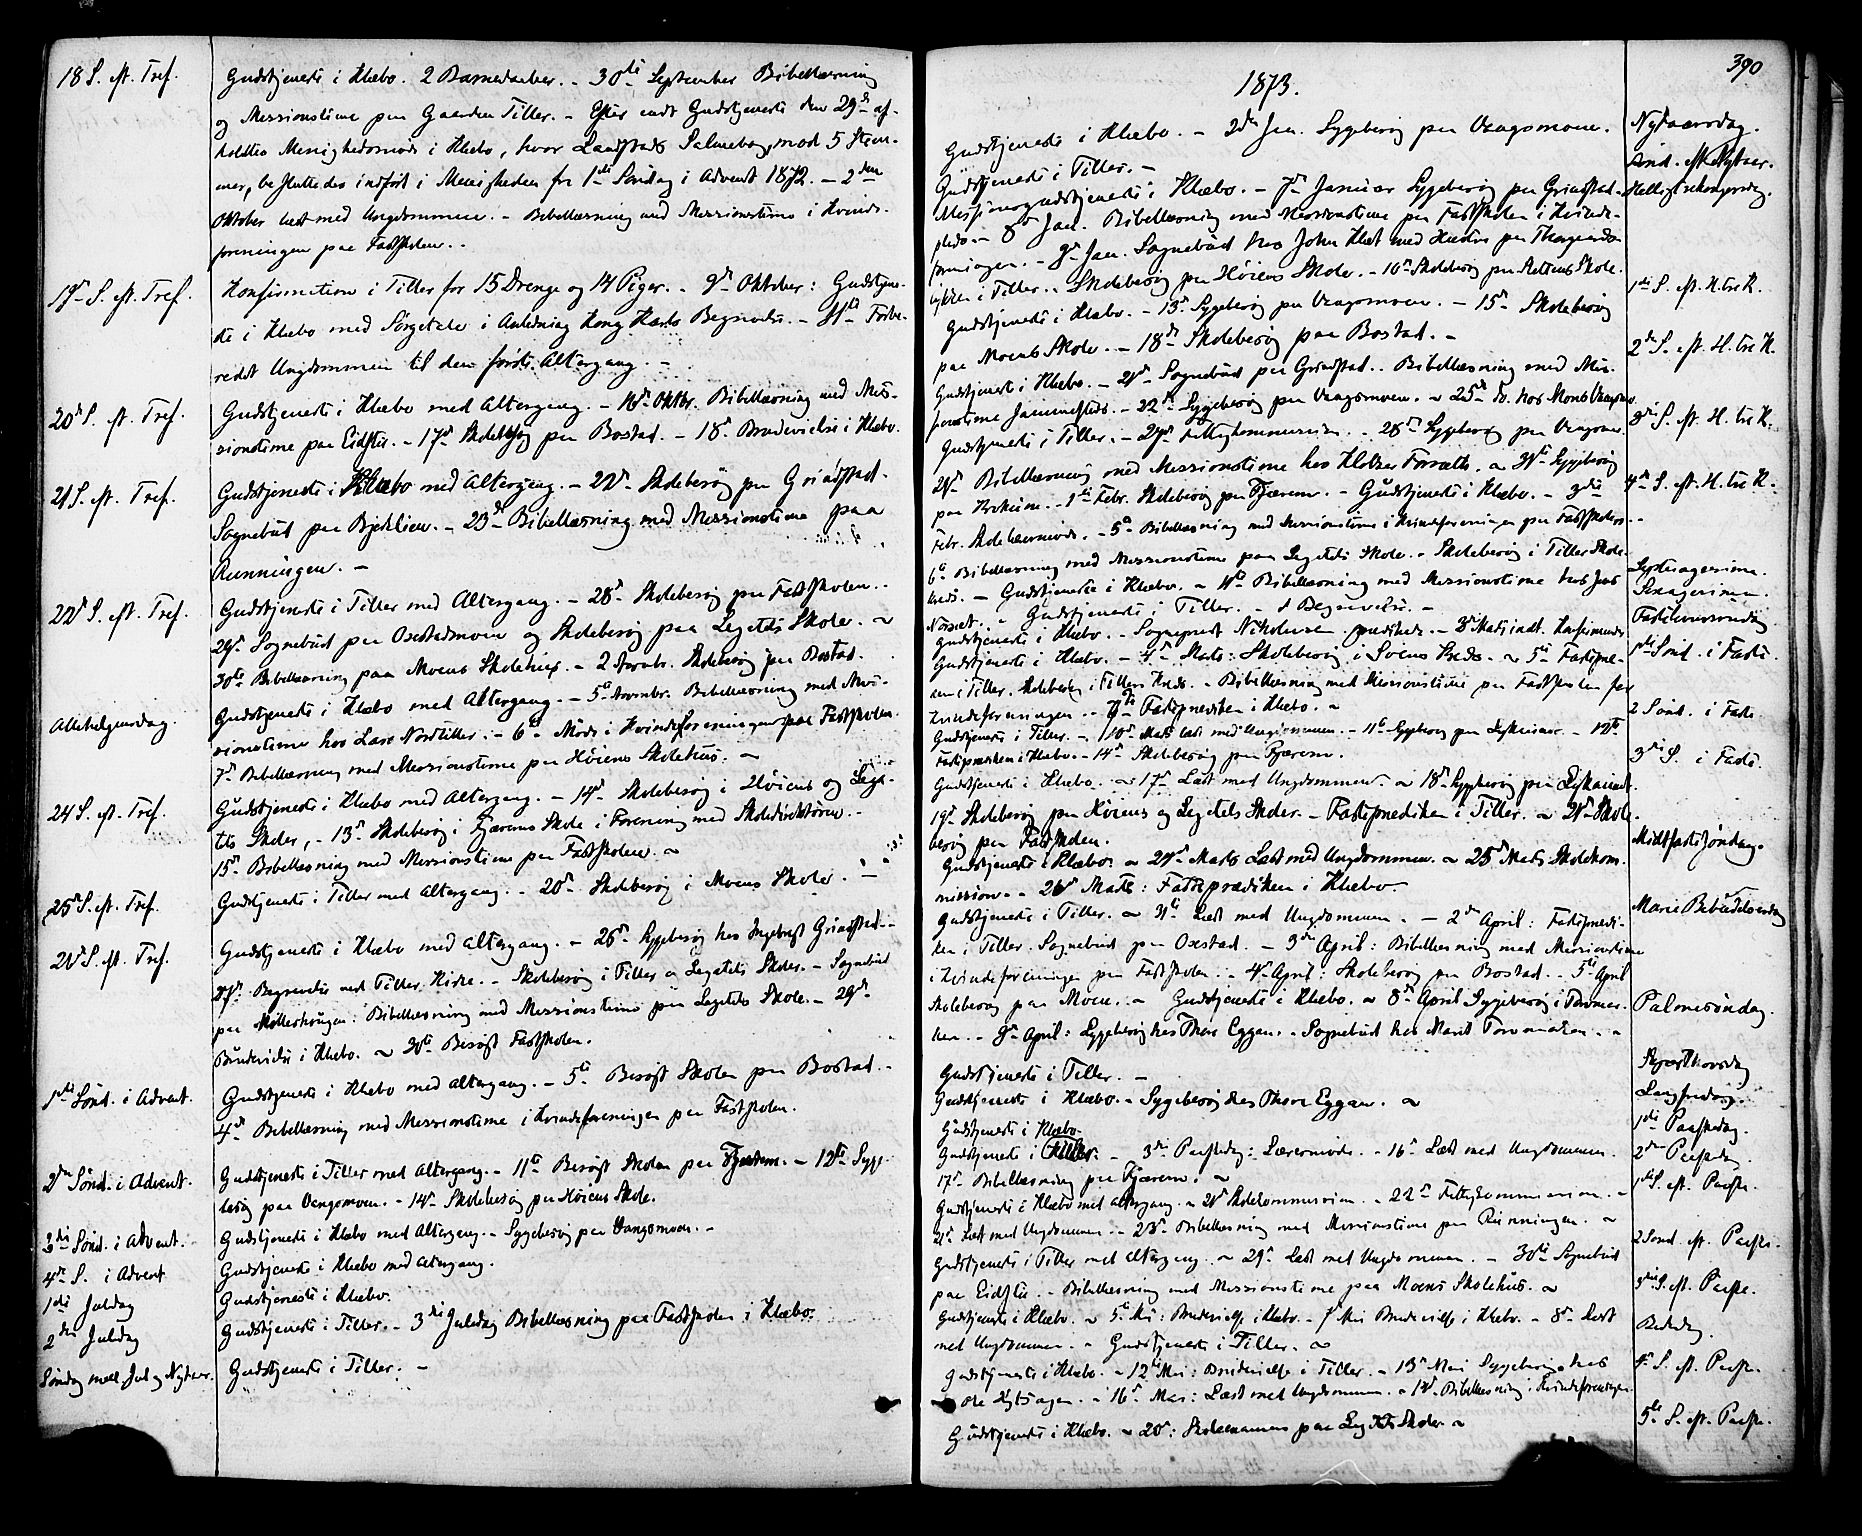 18 S. eft. Tref. Gudstjeneste i Klæbo. 2 Barnedaaber. – 30te September Bibellæsning
og Missionstime paa Gaarden Tiller. – Efter endt Gudstjeneste den 29de af-
holdtes Menighedsmøde i Klæbo, hvor Landstads Salmebog, mod 5 Stem-
mer, besluttedes indført i Menigheden fra 1ste Søndag i Advent 1872. – 2den
Oktober læst med Ungdommen. – Bibellæsning med Missionstime i Kvinde-
foreningen paa Fastskolen. –
19de S. eft. Tref. Konfirmation i Tiller for 15 Drenge og 14 Piger. – 9de Oktober: Gudstjene-
ste i Klæbo med Sørgetale i Anledning Kong Karls Begravelse. – 11te Forbe-
redet Ungdommen til den første Altergang. –
20de S. eft. Tref. Gudstjeneste i Klæbo med Altergang. – 16de Oktbr. Bibellæsning med Mis-
sionstime paa Eidster. – 17de Skolebesøg paa Bostad. – 18de Brudevielse i Klæbo.
21 S. eft. Tref. Gudstjeneste i Klæbo med Altergang. – 22de Skolebesøg paa Grindstad.
Sognebud paa Bjerklien. – 23de Bibellæsning med Missionstime paa
Rønningen. –
22de S. eft. Tref. Gudstjeneste i Tiller med Altergang. – 28de Skolebesøg paa Fastskolen. –
29de Sognebud paa Oxstadmoen og Skolebesøg paa Legatets Skole. –
30te Bibellæsning paa Moens Skolehus. – 2 Novbr. Skolebesøg paa Bostad.
Allehelgensdag. Gudstjeneste i Klæbo med Altergang. – 5te Novembr. Bibellæsning med Mis-
sionstime hos Lars Nordtiller. – 6te Møde i Kvindeforeningen paa Fastskolen.
7de Bibellæsning med Missionstime paa Høiens Skolehus. –
24 S. eft. Tref. Gudstjeneste i Klæbo med Altergang. – 14de Skolebesøg i Høiens og Lega-
tets Skoler, – 13de Skolebesøg i Fjærens Skole i Forening med Skoledirektøren. –
15de Bibellæsning med Missionstime paa Fastskolen. –
25de S. eft. Tref. Gudstjeneste i Tiller med Altergang. – 20de Skolebesøg i Moens Skole. –
26de S. eft. Tref. Gudstjeneste i Klæbo med Altergang. – 26de Sygebesøg hos Ingebrigt Grindstad. –
27de Begravelse ved Tiller Kirke. – Skolebesøg i Tiller og Legatets Skoler. – Sognebud
paa Møllerhaugen. Bibellæsning med Missionstime paa Legatets Skole. – 29de
Brudevielse i Klæbo. – 30te Besøgt Fastskolen.
1ste Sønd. i Advent. Gudstjeneste i Klæbo med Altergang. – 5te Besøgt Skolen paa Bostad. –
4de Bibellæsning med Missionstime i Kvindeforeningen paa Fastskolen.
2den Sønd. i Advent. Gudstjeneste i Tiller med Altergang. – 11te Besøgt Skolen paa Fjærem. – 12te Syge-
besøg paa Vangsmoen. – 14de Skolebesøg paa Høiens Skole.
3die Sønd. i Advent. Gudstjeneste i Klæbo med Altergang. – Sygebesøg paa Vangsmoen. –
4de S. i Advent Gudstjeneste i Klæbo med Altergang.
1ste Juledag Gudstjeneste i Klæbo.
2den Juledag Gudstjeneste i Tiller. – 3die Juledag Bibellæsning paa Fastskolen i Klæbo.
Søndag mell. Jul og Nytaar. Gudstjeneste i Tiller. –
390
1873.
Gudstjeneste i Klæbo. – 2den Jan. Sygebesøg paa Vangsmoen. Nytaarsdag.
Gudstjeneste i Tiller. – Sønd. eft. Nytaar.
Missionsgudstjeneste i Klæbo. – 7de Januar Sygebesøg paa Grindstad- Helligtrekongersdag.
pladsen – 8de Jan. Bibellæsning med Missionstime paa Fastskolen i Kvinde-
foreningen. – 9de Jan. Sognebud hos John
i Tiller. – Skolebesøg paa Høiens Skole. – 10de Skolebesøg paa Skole.
Gudstjeneste i Klæbo. – 13de Sygebesøg paa Vangsmoen. – 15de Skolebesøg 1ste S. eft. H. tre K.
paa Moens Skole. – 18de Skolebesøg paa Bostad. –
Gudstjeneste i Klæbo. – 21de Sognebud paa Grindstad. – Bibellæsning med Mis- 2den S. eft. H. tre K.
sionstime sammesteds. – 22de Sygebesøg paa Vangsmoen. – 25de Do. hos Mons
Gudstjeneste i Tiller. – 27de Fattigkommission. – 28de Sygebesøg paa Vangsmoen 3die S. eft. H. tre K.
29de Bibellæsning med Missionstime hos Klokker Forseth. – 31te Sygebesøg
paa Krokum. – 1ste Febr. Skolebesøg paa Fjærem. – Gudstjeneste i Klæbo. – 3die 4de S. eft. H. tre K.
Febr. Skolelærermøde. – 5te Bibellæsning med Missionstime i Kvindeforeningen paa Fastskolen. –
6te Bibellæsning med Missionstime paa Legatets Skole. – Skolebesøg i Tiller Skole-
kreds. – Gudstjeneste i Klæbo. – 11te Bibellæsning med Missionstime hos Jens Septuagesima.
– Gudstjeneste i Tiller. – 1 Begravelse. – Sexagesima.
Gudstjeneste i Klæbo. – Sogneprest Nikolausen prædikede. – 3die Marts indt. Konfirmander Fastelavnssøndag
Gudstjeneste i Klæbo. – 4de Marts: Skolebesøg i Kreds. – 5te Fastepræ- 1ste Sønd. i Faste.
ken i Tiller. Skolebesøg i Tillers Kreds. – Bibellæsning med Missionstime paa Fastskolen for
Kvindeforeningen. – Fastepræken i Klæbo. –
Gudstjeneste i Tiller. – 10de Marts læst med Ungdommen. – 11te Sygebesøg paa – 12te 2 Sønd. i Faste
Fastepræken i Klæbo. – 14de Skolebesøg paa Fjærem.
Gudstjeneste i Klæbo. – 17de Læst med Ungdommen – 18de Sygebesøg paa 3die S. i Faste.
19de Skolebesøg paa Høiens og Legatets Skoler. – Fasteprædiken i Tiller. – 21de Skole-
besøg paa Fastskolen.
Gudstjeneste i Klæbo. – 24de Marts Læst med Ungdommen. – 25de Marts Skolekom- Midtfastesøndag.
mission. – 26de Marts: Fasteprædiken i Klæbo –
Gudstjeneste i Tiller. – 31te Læst med Ungdommen. – 2den April: Fastepredi- Marie Bebudelsesdag
ken i Tiller. Sognebud paa Oxstad. – 3die April: Bibellæsning med Missionstime
i Kvindeforeningen paa Fastskolen. – 4de April: Skolebesøg paa Bostad. – 5te April
Skolebesøg paa Moen. – Gudstjeneste i Klæbo. – 8de April Sygebesøg i Palmesøndag.
– 9de April: Sygebesøg hos Thore Eggen. – Sognebud hos Marit –
Gudstjeneste i Tiller. – Skjærthorsdag
Gudstjeneste i Klæbo. – Sygebesøg hos Thore Eggen. – Langfredag.
Gudstjeneste i Klæbo. 1ste Paaskedag.
Gudstjeneste i Tiller. – 3die Paaskedag: Lærermøde. – 16de Læst med Ungdommen. 2den Paaskedag.
17de Bibellæsning paa Fjærem. –
Gudstjeneste i Klæbo med Altergang. – 21de Skolekommission. – 22de Fattigkommission. – 1ste S. eft. Paaske.
21de Læst med Ungdommen. – 23de Bibellæsning med Missionstime paa Rønningen. –
Gudstjeneste i Tiller med Altergang. – 29de Læst med Ungdommen – 30te Sognebud 2 Sønd. eft. Paaske.
paa Eidster. – Bibellæsning med Missionstime paa Moens Skolehus. –
Gudstjeneste i Klæbo. – 5te Mai: Brudevielse i Klæbo. – Mai Brudevielse i Klæbo. – 8de Læst 3die S. eft. Paaske.
med Ungdommen. – Gudstjeneste i Tiller. – Bededag.
Gudstjeneste i Klæbo. – 12te Mai: Brudevielse i Tiller. – 13de Mai Sygebesøg hos 4de S. eft. Paaske.
Ole – 16de Mai: Læst med Ungdommen. – Bibellæsning i Kvindeforeningen.
Gudstjeneste i Klæbo. – 20de: Skoleexamen paa Legatets Skole – 5te S. eft. Paaske.